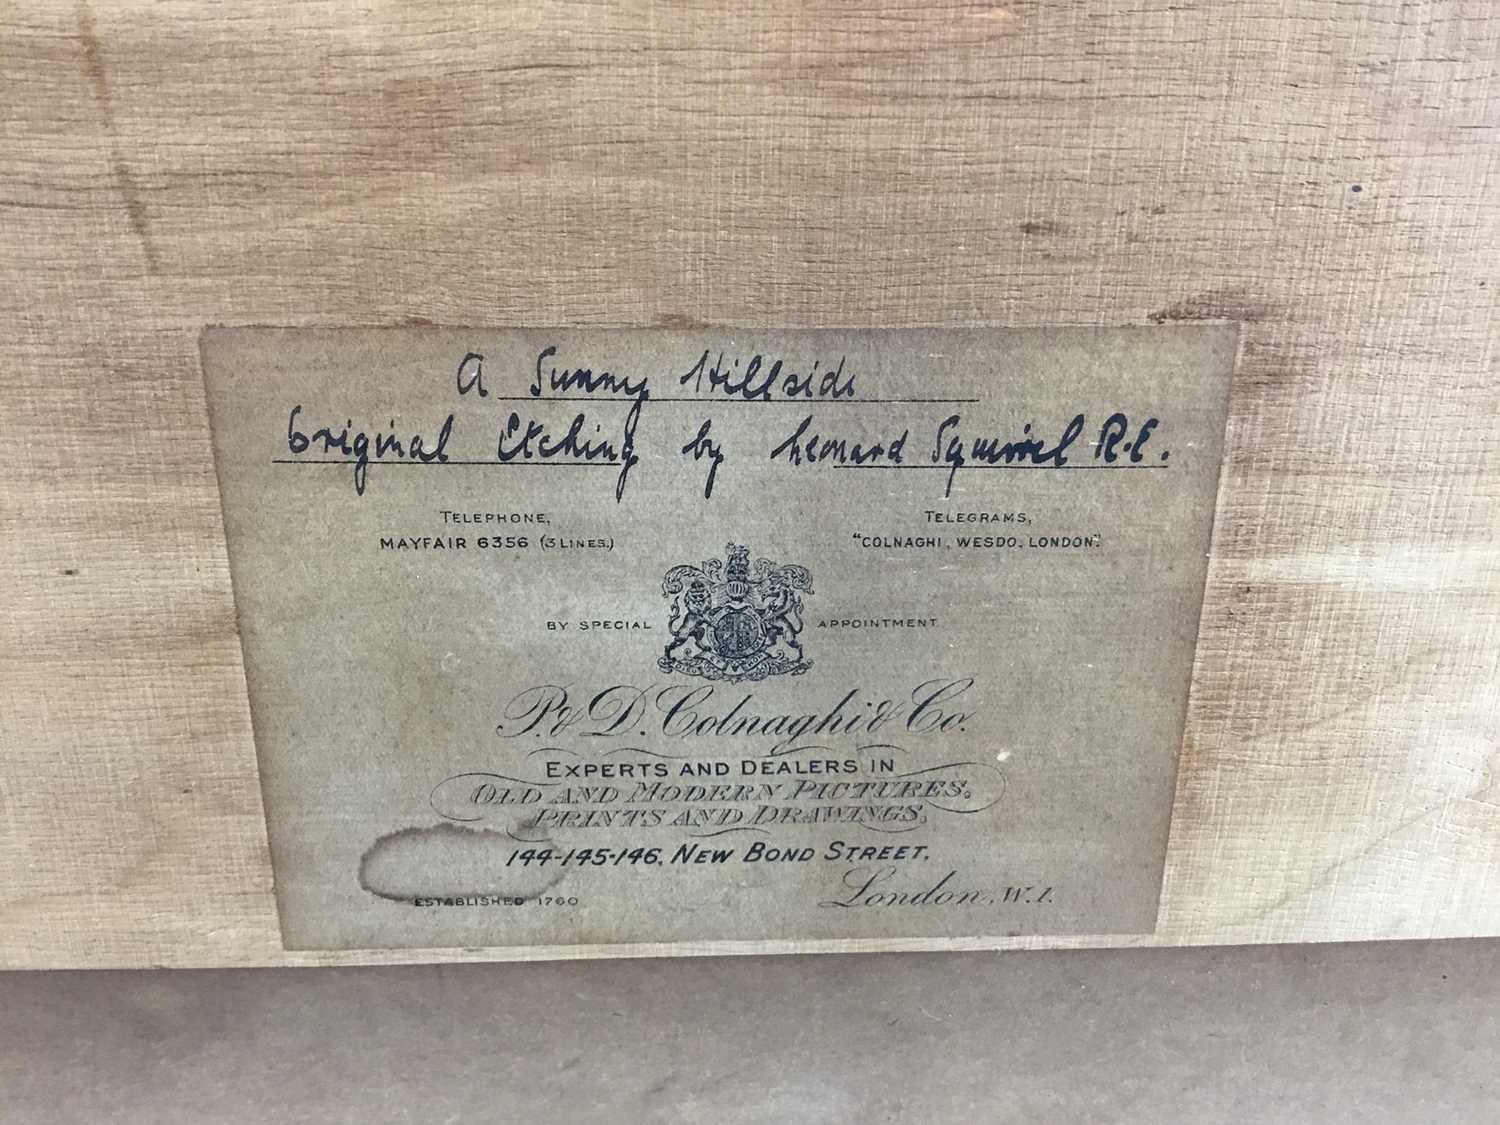 A Sunny Hillside
Original Etching by Leonard Squirrel R.E.
TELEPHONE,
MAYFAIR 6356 (3 LINES.)
TELEGRAMS,
"COLNAGHI, WESDO, LONDON."
BY SPECIAL APPOINTMENT
P. & D. Colnaghi & Co.
EXPERTS AND DEALERS IN
OLD AND MODERN PICTURES,
PRINTS AND DRAWINGS,
144-145-146, NEW BOND STREET,
London, W.1.
ESTABLISHED 1760